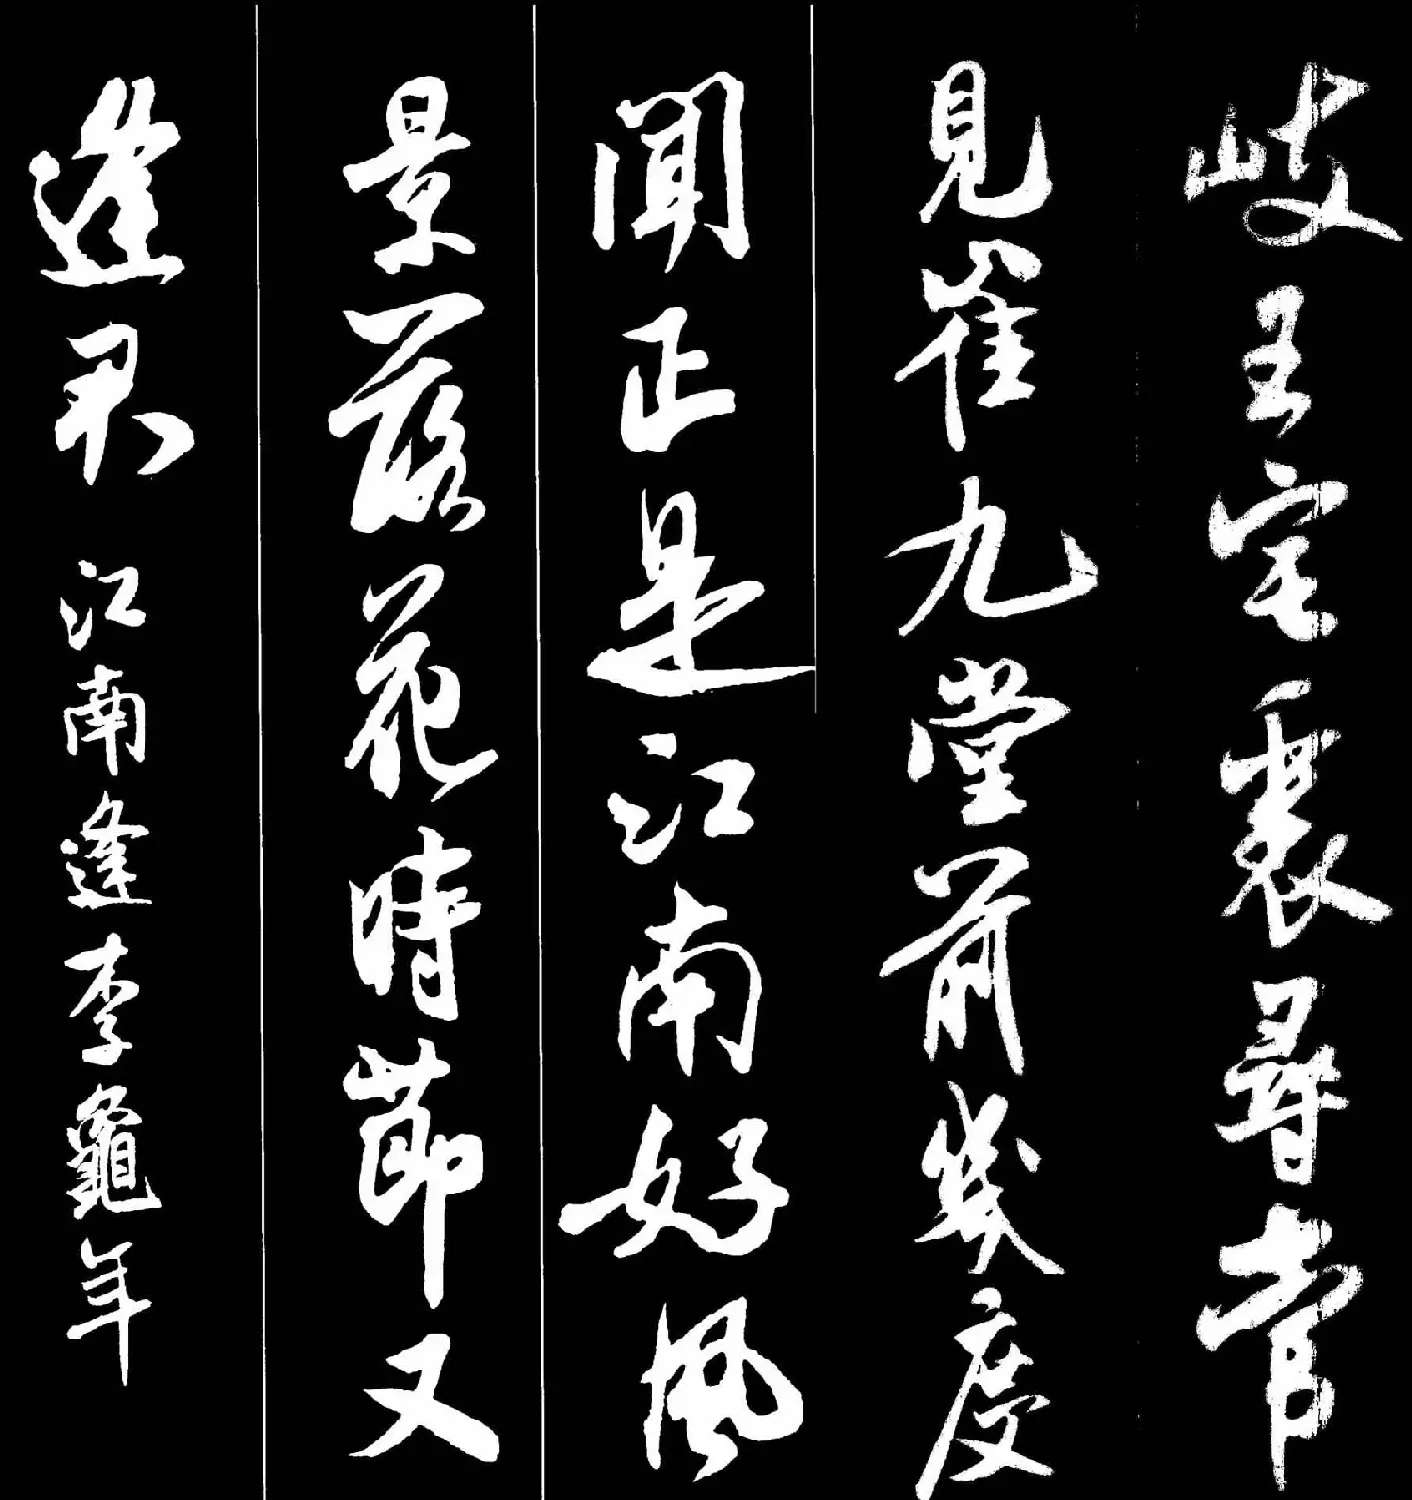 岐王宅裏尋常
見崔九堂前幾度
聞正是江南好風
景落花時節又
逢君 江南逢李龜年